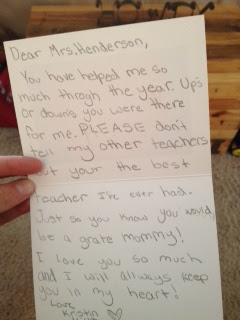 Dear Mrs. Henderson,
You have helped me so
much throgh the year. Up's
or down's you were there
for me. PLEASE don't
tell my other teachers
but your the best
teacher I've ever had.
Just so you know you would
be a grate mommy!
I love you so much
and I will allways keep
you in my heart!
Love,
Kristin